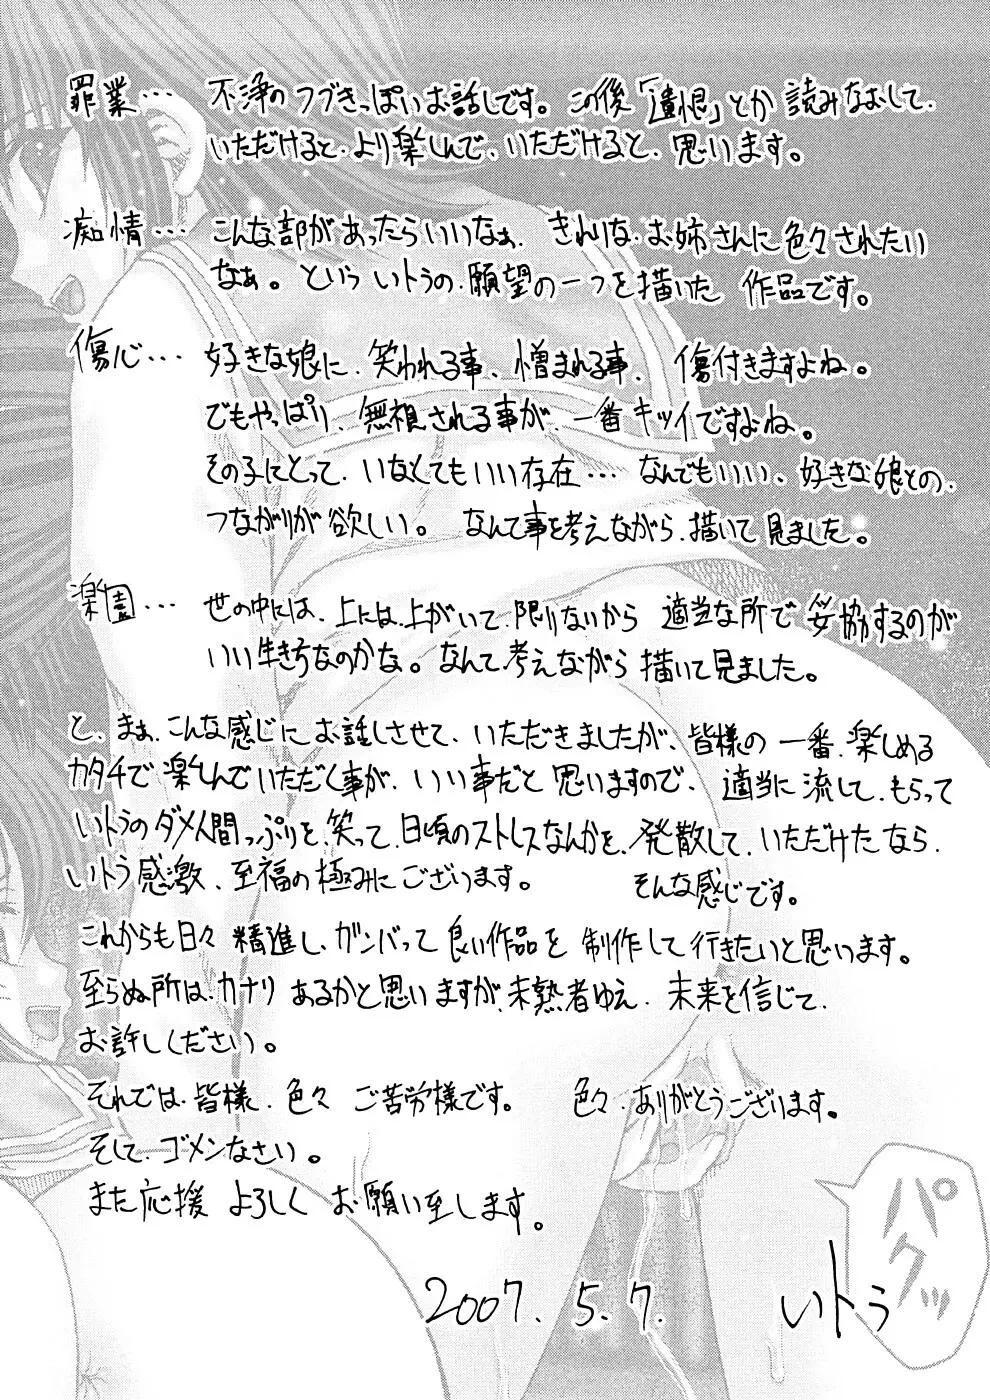 罪業… 不浄のつづきっぽいお話しです。この後「遺恨」とか読みなおして、
いただけると、より楽しんで、いただけると、思います。
痴情… こんな部があったらいいなぁ、きれいな、お姉さんに色々されたい
なぁ。というイトうの、願望の一つを描いた 作品です。
傷心… 好きな娘に、笑われる事、憎まれる事、傷付きますよね。
でもやっぱり、無視される事が、一番キツイですよね。
その子にとって、いなくてもいい存在… なんでもいい、好きな娘との、
つながりが欲しい。なんて事を考えながら、描いて見ました。
楽園… 世の中には、上には、上がいて、限りないから 適当な所で妥協するのが
いい生き方なのかな。なんて考えながら描いて見ました。
と、まぁ、こんな感じにお話しさせて、いただきましたが、皆様の一番、楽しめる
カタチで楽しんでいただく事が、いい事だと思いますので、適当に流して、もらって
いトうのダメ人間っぷりを、笑って、日頃のストレスなんかを、発散して、いただけたなら、
いトう感激、至福の極みにございます。 そんな感じです。
これからも日々精進し、ガンバって良い作品を制作して行きたいと思います。
至らぬ所は、カナリあるかと思いますが、未熟者ゆえ、未来を信じて、
お許しください。
それでは、皆様、色々ご苦労様です。 色々、ありがとうございます。
そして、ゴメンなさい。
また応援よろしくお願い至します。
2007. 5. 7. いトう
パクッ